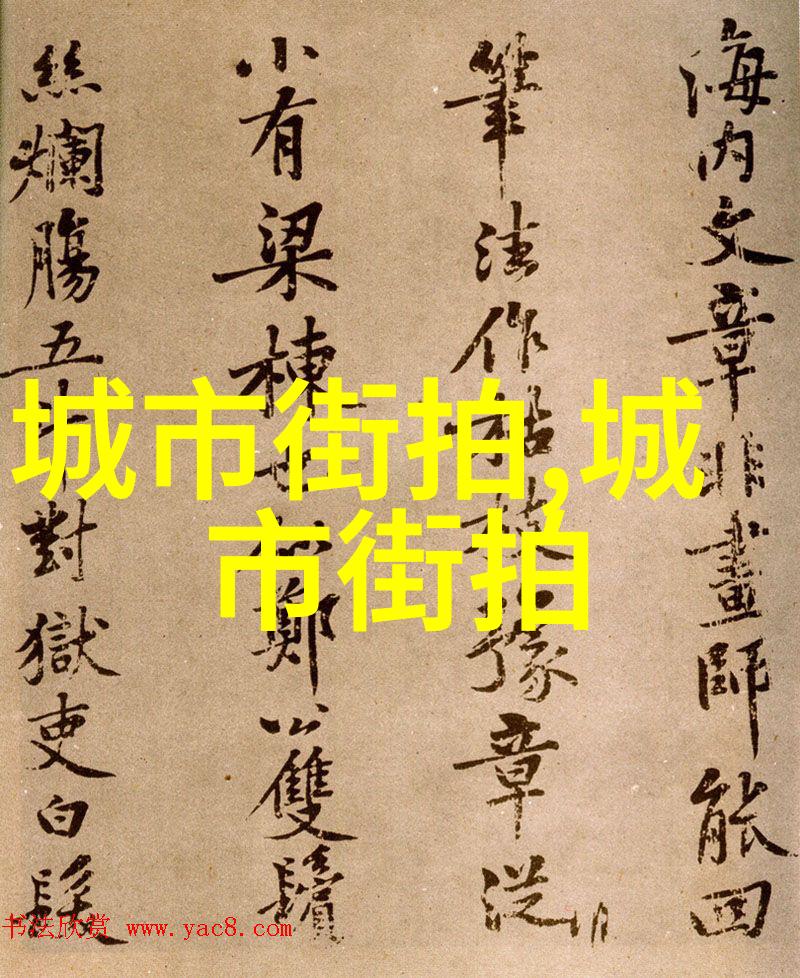 海内文章非畫師能回
筆法作枯枝豫章從
小有梁棟也似鄭公雙鬢
絲爛腸五斗對獄吏白髮
城市街拍,城
市街拍
书法欣赏 www.yac8.com